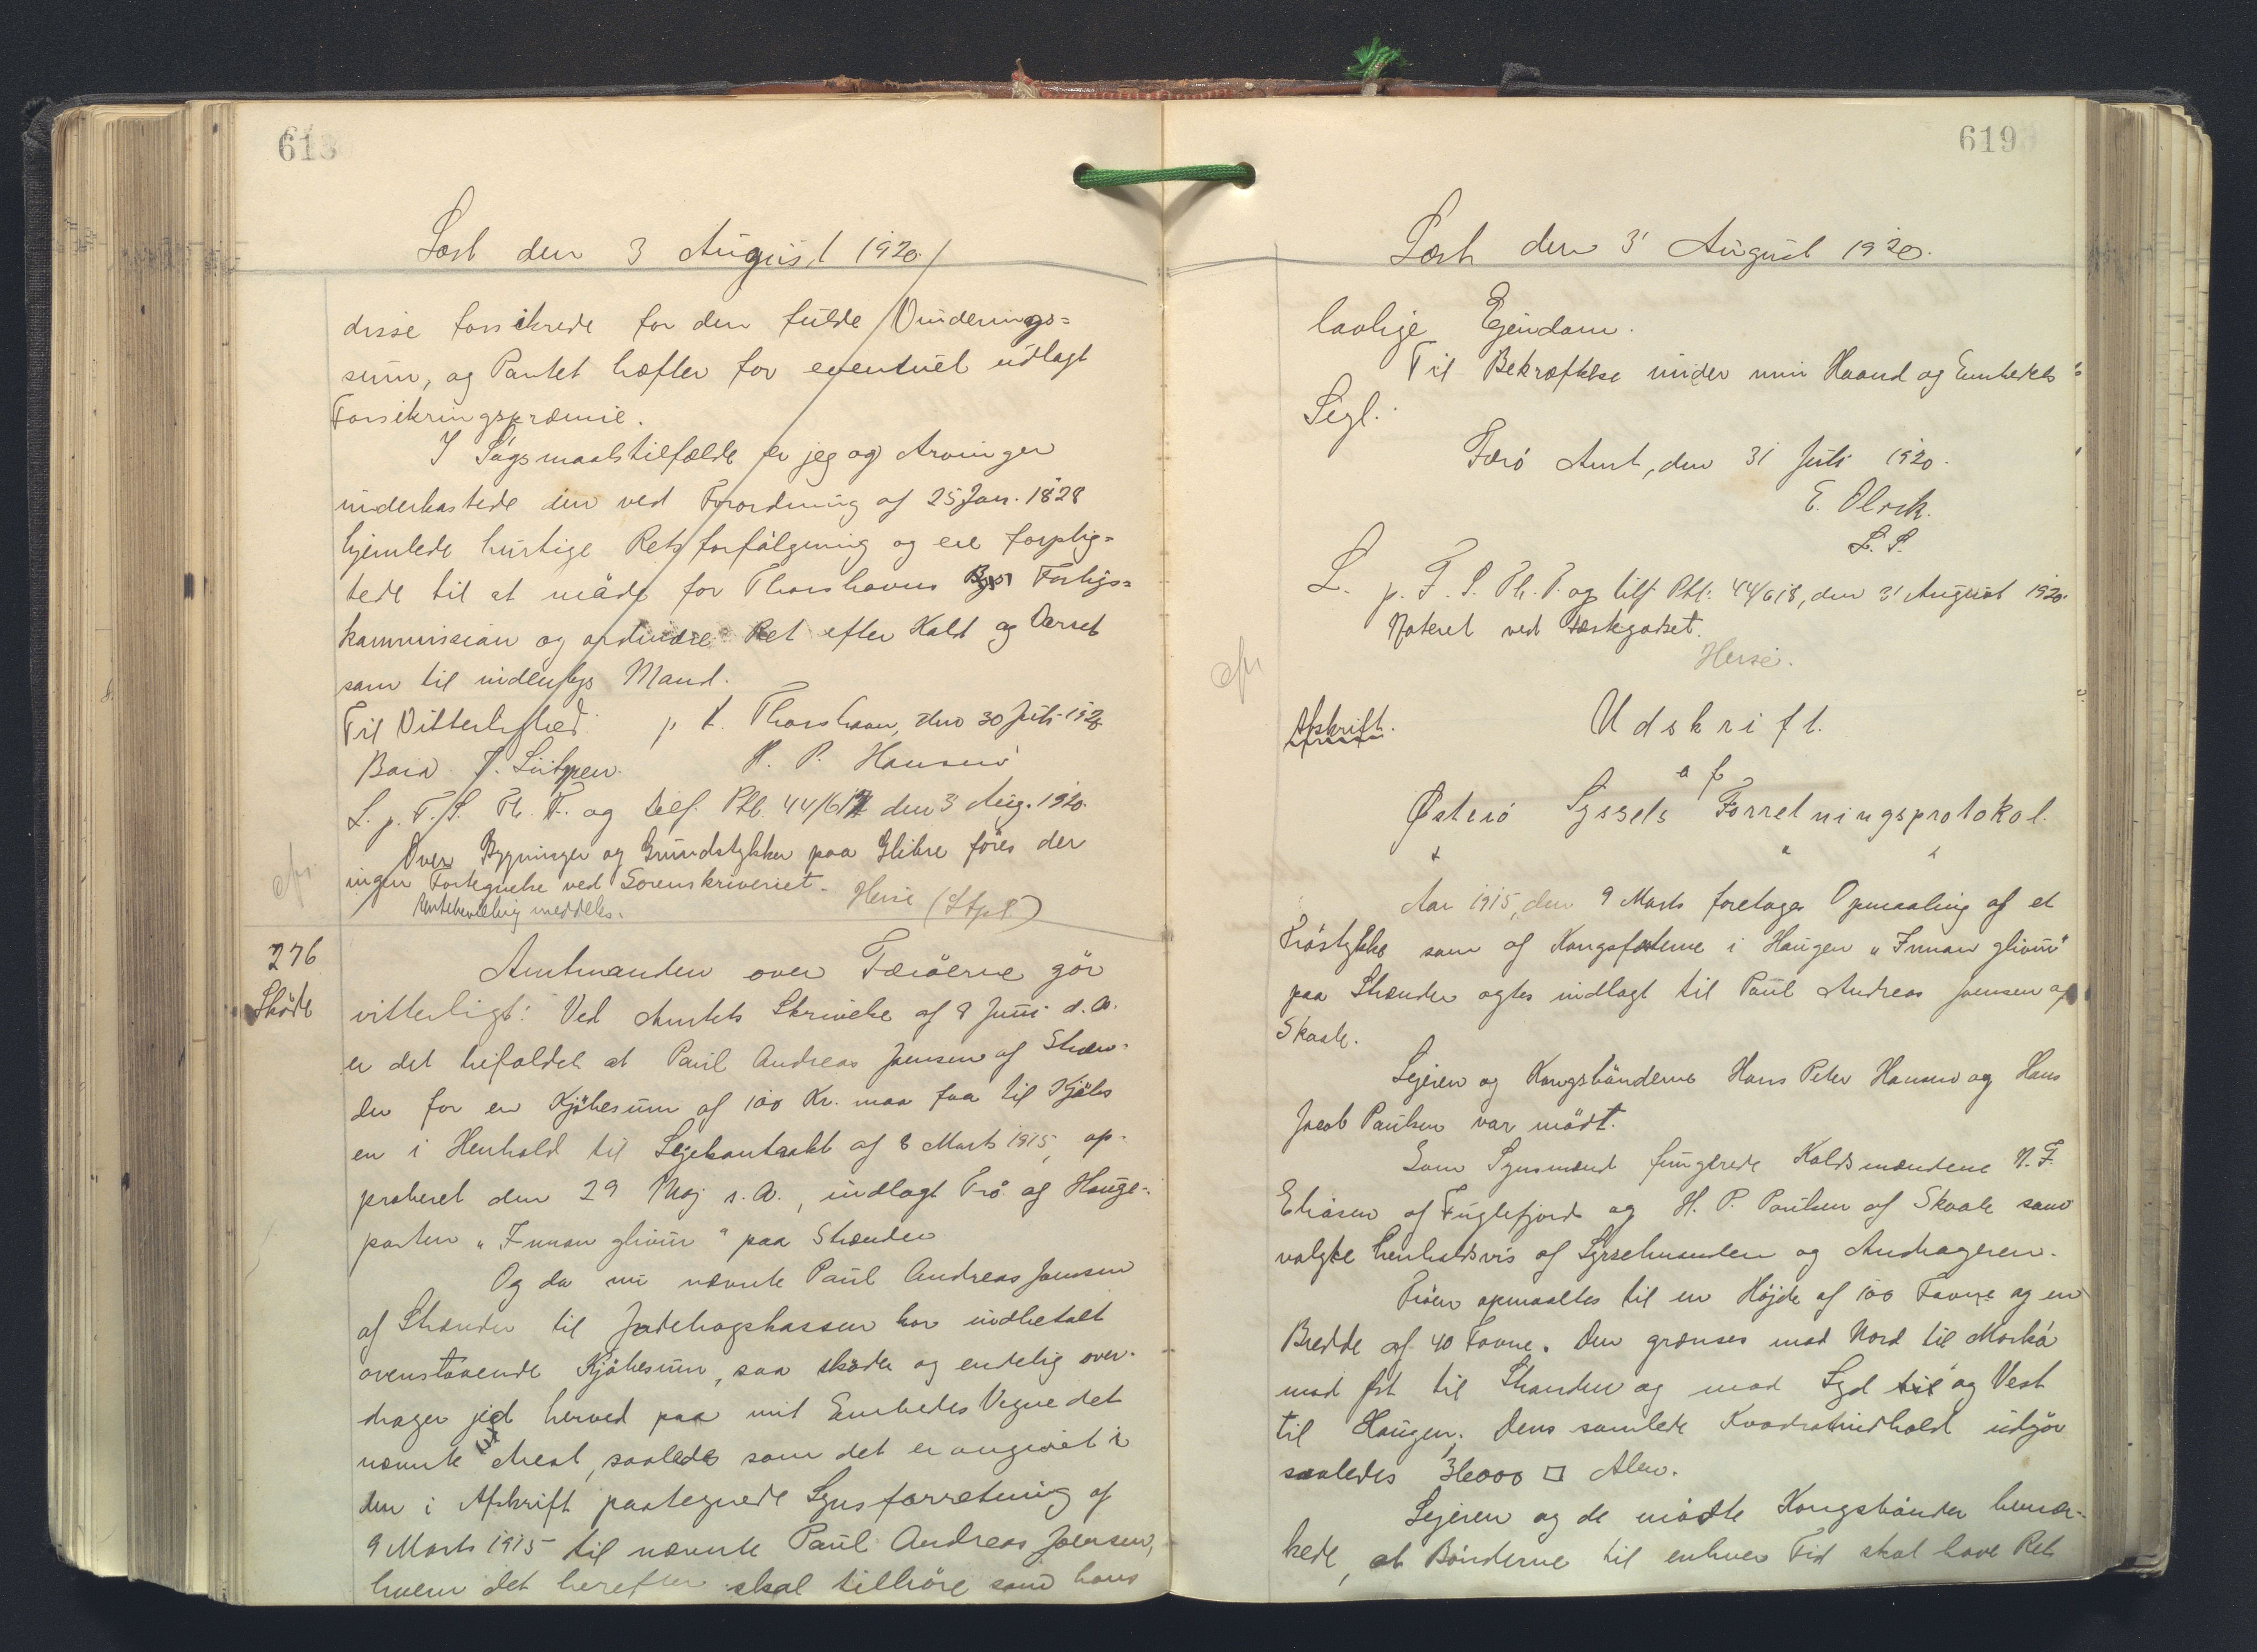 618
Læst den 3 August 1920.
disse forsikrede for den fulde Vurderings=
sum, og Pantet hæfter for eventuel udlagt
Forsikringspræmie.
I Søgsmaalstilfælde er jeg og Arvinger
underkastede den ved Forordning af 25 Jan. 1828
hjemlede hurtige Retsforfølgning og ere forplig=
tede til at møde for Thorshavns Forligs=
kommission og ordinære Ret efter Kald og Varsel
som til indenbys Mand.
Til Vitterlighed p. t. Thorshavn, den 30 Juli 1920
H. P. Hansen
L. p. F. S. Th. T. og tilf. Ptb. 44/617 den 3 Aug. 1920.
Over Bygninger og Grundstykker paa Glibre føres der
ingen Fortegnelse ved Sorenskriveriet.
meddeles.
276
Skøde
Amtmanden over Færøerne gör
vitterligt: Ved Amtets Skrivelse af 8 Juni d. A.
er det bifaldet at Paul Andreas Joensen af Stræn-
der for en Kjøbesum af 100 Kr. maa faa til Kjøbs
en i Henhold til Lejekontrakt af 8 Marts 1915, ap-
proberet den 29 Maj s. A., indlagt Trø af Hauge-
parten "Innan glivur" paa Strænder
Og da nu nævnte Paul Andreas Joensen
af Strænder til Jordebogskassen har indbetalt
ovenstaaende Kjøbesum, saa skøder og endelig over-
drager jeg herved paa mit Embedes Vegne det
nævnte Areal, saaledes som det er angivet i
den i Afskrift paategnede Synsforretning af
9 Marts 1915 til nævnte Paul Andreas Joensen,
hvem det herefter skal tilhøre som hans
619
Læst den 3' August 1920.
lovlige Ejendom.
Til Bekræftelse under min Haand og Embedets
Segl.
Færö Amt, den 31 Juli 1920.
E. Olrik.
L. S.
L. p. F. S. Th. T. og tilf. Ptb. 44/618, den 3' August 1920.
Noteret ved
Afskrift.
Udskrift.
af
Østerö Syssels Forretningsprotokol.
Aar 1915, den 9 Marts foretoges Opmaaling af et
Trøstykke som af Kongsfæsterne i Haugen "Innan glivur"
paa Strænder agtes indlagt til Paul Andreas Joensen af
Skaale.
Lejeren og Kongsbønderne Hans Peter Hansen og Hans
Jacob Paulsen var mødt.
Som Synsmænd fungerede Koldsmændene N. F.
Eliasen af Fuglefjord og H. P. Poulsen af Skaale som
valgte henholdsvis af Sysselmanden og Andrageren.
Trøen opmaaltes til en Højde af 100 Favne og en
Bredde af 40 Favne. Den grænses mod Nord til Morká
mod Øst til Stranden og mod Syd til og Vest
til Haugen. Dens samlede Kvadratindhold udgør
saaledes 36000 □ Alen.
Lejeren og de mødte Kongsbønder bemær-
kede, at Bønderne til enhver Tid skal have Ret